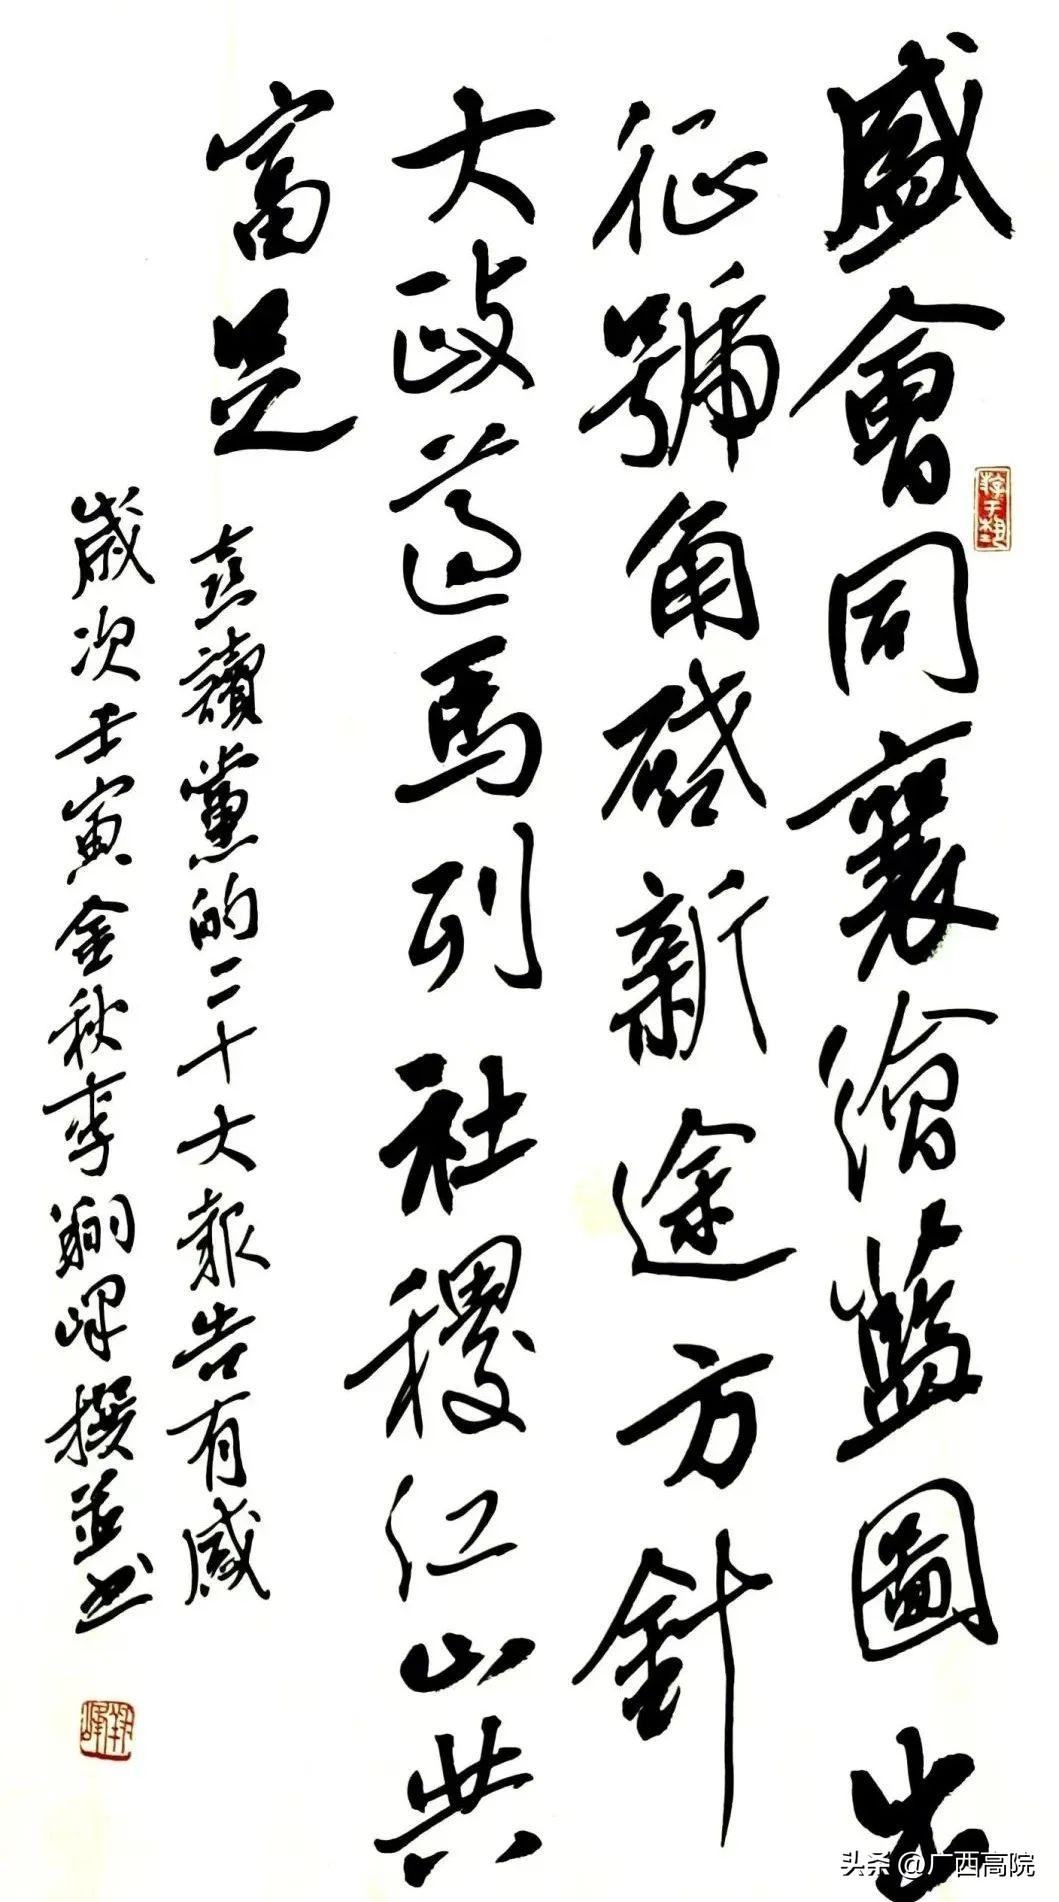 盛會同襄繪藍圖出
征號角啟新途方針
大政遵馬列社稷江山共
富足
喜讀黨的二十大報告有感
歲次壬寅金秋李撰並书
头条 @广西高院